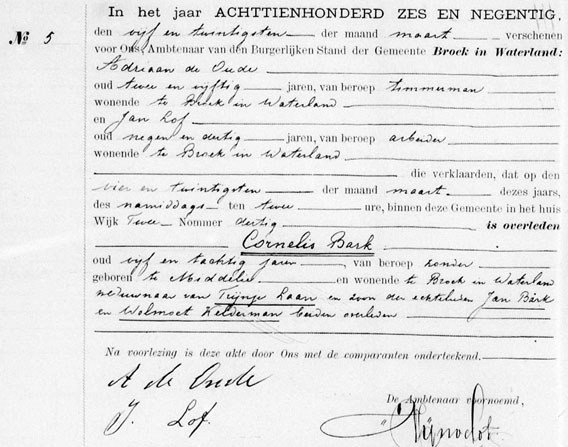 No 5
In het jaar ACHTTIENHONDERD ZES EN NEGENTIG,
den vijf en twintigsten der maand maart verschenen
voor Ons, Ambtenaar van den Burgerlijken Stand der Gemeente Broek in Waterland:
Adriaan de Oude
oud twee en vijftig jaren, van beroep timmerman
wonende te Broek in Waterland
en Jan Lof
oud negen en dertig jaren, van beroep arbeider
wonende te Broek in Waterland
die verklaarden, dat op den
vier en twintigsten der maand maart dezes jaars,
des namiddags ten twee ure, binnen deze Gemeente in het huis
Wijk Twee Nommer dertig is overleden
Cornelis Bark
oud vijf en tachtig jaren, van beroep zonder
geboren te Middelie en wonende te Broek in Waterland
weduwnaar van Trijntje Laan en zoon der echtelieden Jan Bark
en Wolmoet Kelderman beiden overleden
Na voorlezing is deze akte door Ons met de comparanten onderteekend.
A de Oude
J. Lof.
De Ambtenaar voornoemd,